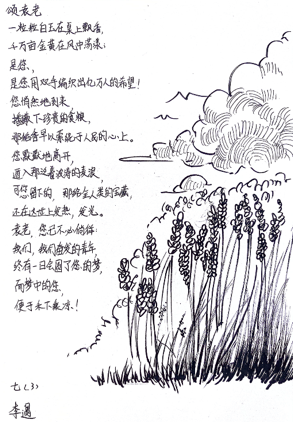 颂袁老
一粒粒白玉在夏上飘香,
千万亩金黄在风中荡漾;
是您,
是您用双手编织出亿万人的希望!
您悄然地到来,
播撒下珍贵的食粮,
那稻香早以萦绕于人民的心上。
您默默地离开,
遁入那泛着波涛的麦浪,
可您留下的,那些全人类的宝藏,
还在这世上发热,发光。
袁老,您已不必彷徨:
我们,我们奋发的青年
终有一日会圆了您的梦,
而梦中的您,
便于禾下乘凉!
七(3)
李遇